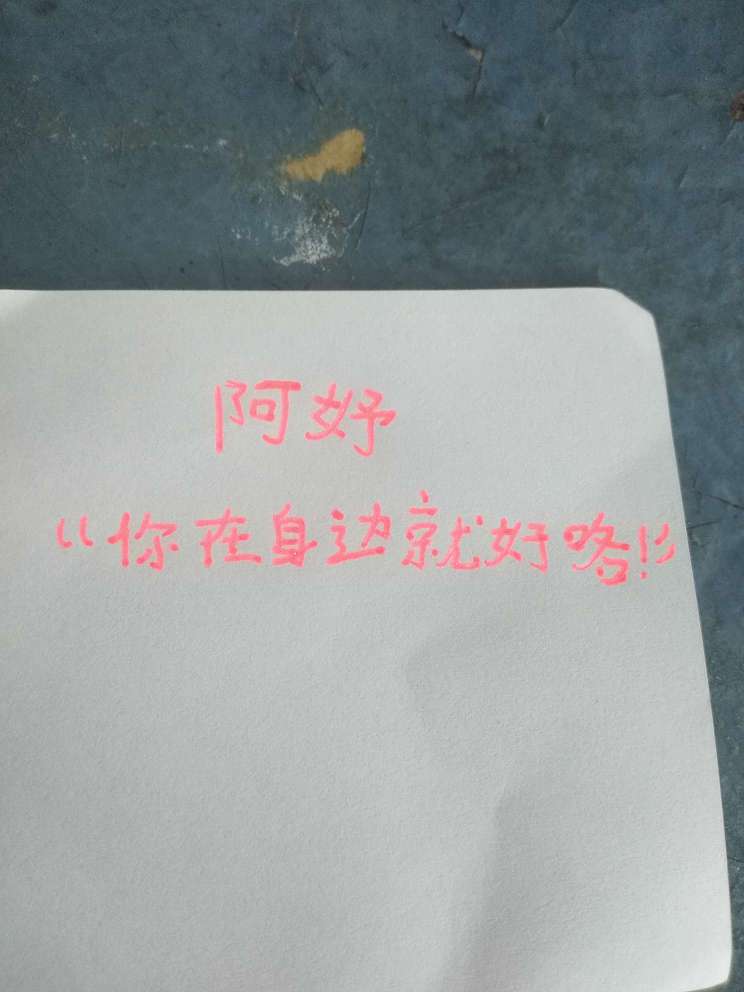 阿妤
“你在身边就好咯!”